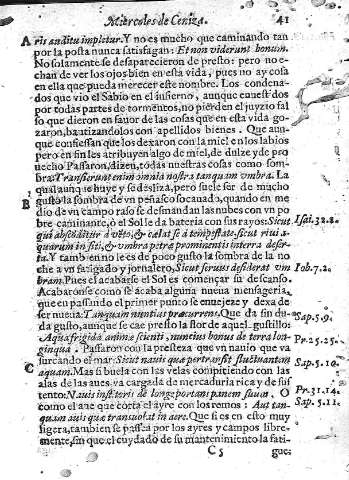 Miercoles de Ceniza. 41
A ris auditu impletur. Y no es mucho que caminando tan
por la posta nunca satisfagan: Et non viderunt bonum.
No solamente se desaparecieron de presto: pero no e-
chan de ver los ojos bien en esta vida, pues no ay cosa
en ella que pueda merecer este nombre. Los condena-
dos que vio el Sabio en el infierno, aunque
por todas partes de tormentos, no pierden el juyzio fal
so que dieron en fauor de las cosas que en esta vida go-
zaron, bautizandolos con apellidos bienes. Que aun-
que confiessan que los dexaron con la miel en los labios
pero en fin les atribuyen algo de miel, de dulze y de pro
uecho. Passaron, dizen, todas nuestras cosas como som-
bra: Transierunt enim omnia nostra tanquam vmbra. La
qual aunque huye y se desliza, pero suele ser de mucho
B gusto la sombra de vn peñasco socauado, quando en me
dio de vn campo raso se desmandan las nubes con vn po
bre caminante, ò el Sol le da bateria con sus rayos: Sicut Isai.32.2.
qui absconditur à vento, & celat se à tempestate, sicut riui a-
quarum in siti, & vmbra petræ prominentis in terra deser-
ta. Y tambien no le es de poco gusto la sombra de la no
che a vn fatigado y jornalero, Sicut seruus desiderat vm Iob.7.2.
bram. Pues el acabarse el Sol es començar su descanso.
Acabaronse como se acaba alguna nueua mensageria,
que en passando el primer punto se enuejeze y dexa de
ser nueua: Tanquam nuntius præcurrens. Que da sin du- Sap.5.9.
da gusto, aunque se cae presto la flor de aquel gustillo:
Aqua frigida animæ sicienti, nuntius bonus de terra lon- Pr.25.25.
ginqua. Passaron con la presteza que vn nauio que va
surcando el mar: Sicut nauis quæ pertransit fluctuantem Sap.5.10.
C aquam. Mas si buela con las velas compitiendo con las
alas de las aues, va cargada de mercaduria rica y de sus
tento: Nauis institoris de longe portans panem suum. O Pr.31.14.
como el aue que corta el ayre con los remos: Aut tan- Sap.5.11.
quam auis quæ transuolat in aere. Que si es en esto muy
ligera, tambien se passea por los ayres y campos libre-
mente, sin que el cuydado de su mantenimiento la fati-
C 5 gue: